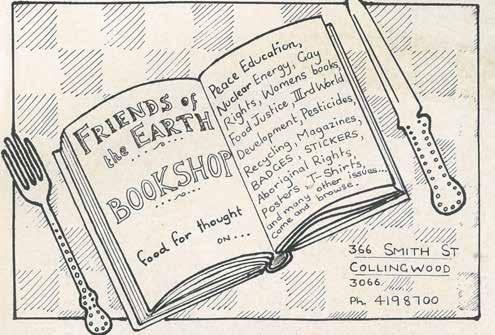 FRIENDS of
the EARTH
BOOKSHOP
food for thought
on...
Peace Education,
Nuclear Energy, Gay
Rights, Womens books,
Food Justice, IIIrd World
Development, Pesticides,
Recycling, Magazines,
BADGES, STICKERS,
Aboriginal Rights,
Posters, T-Shirts,
and many other issues...
Come and browse.
366 SMITH ST
COLLINGWOOD
3066.
Ph. 4198700